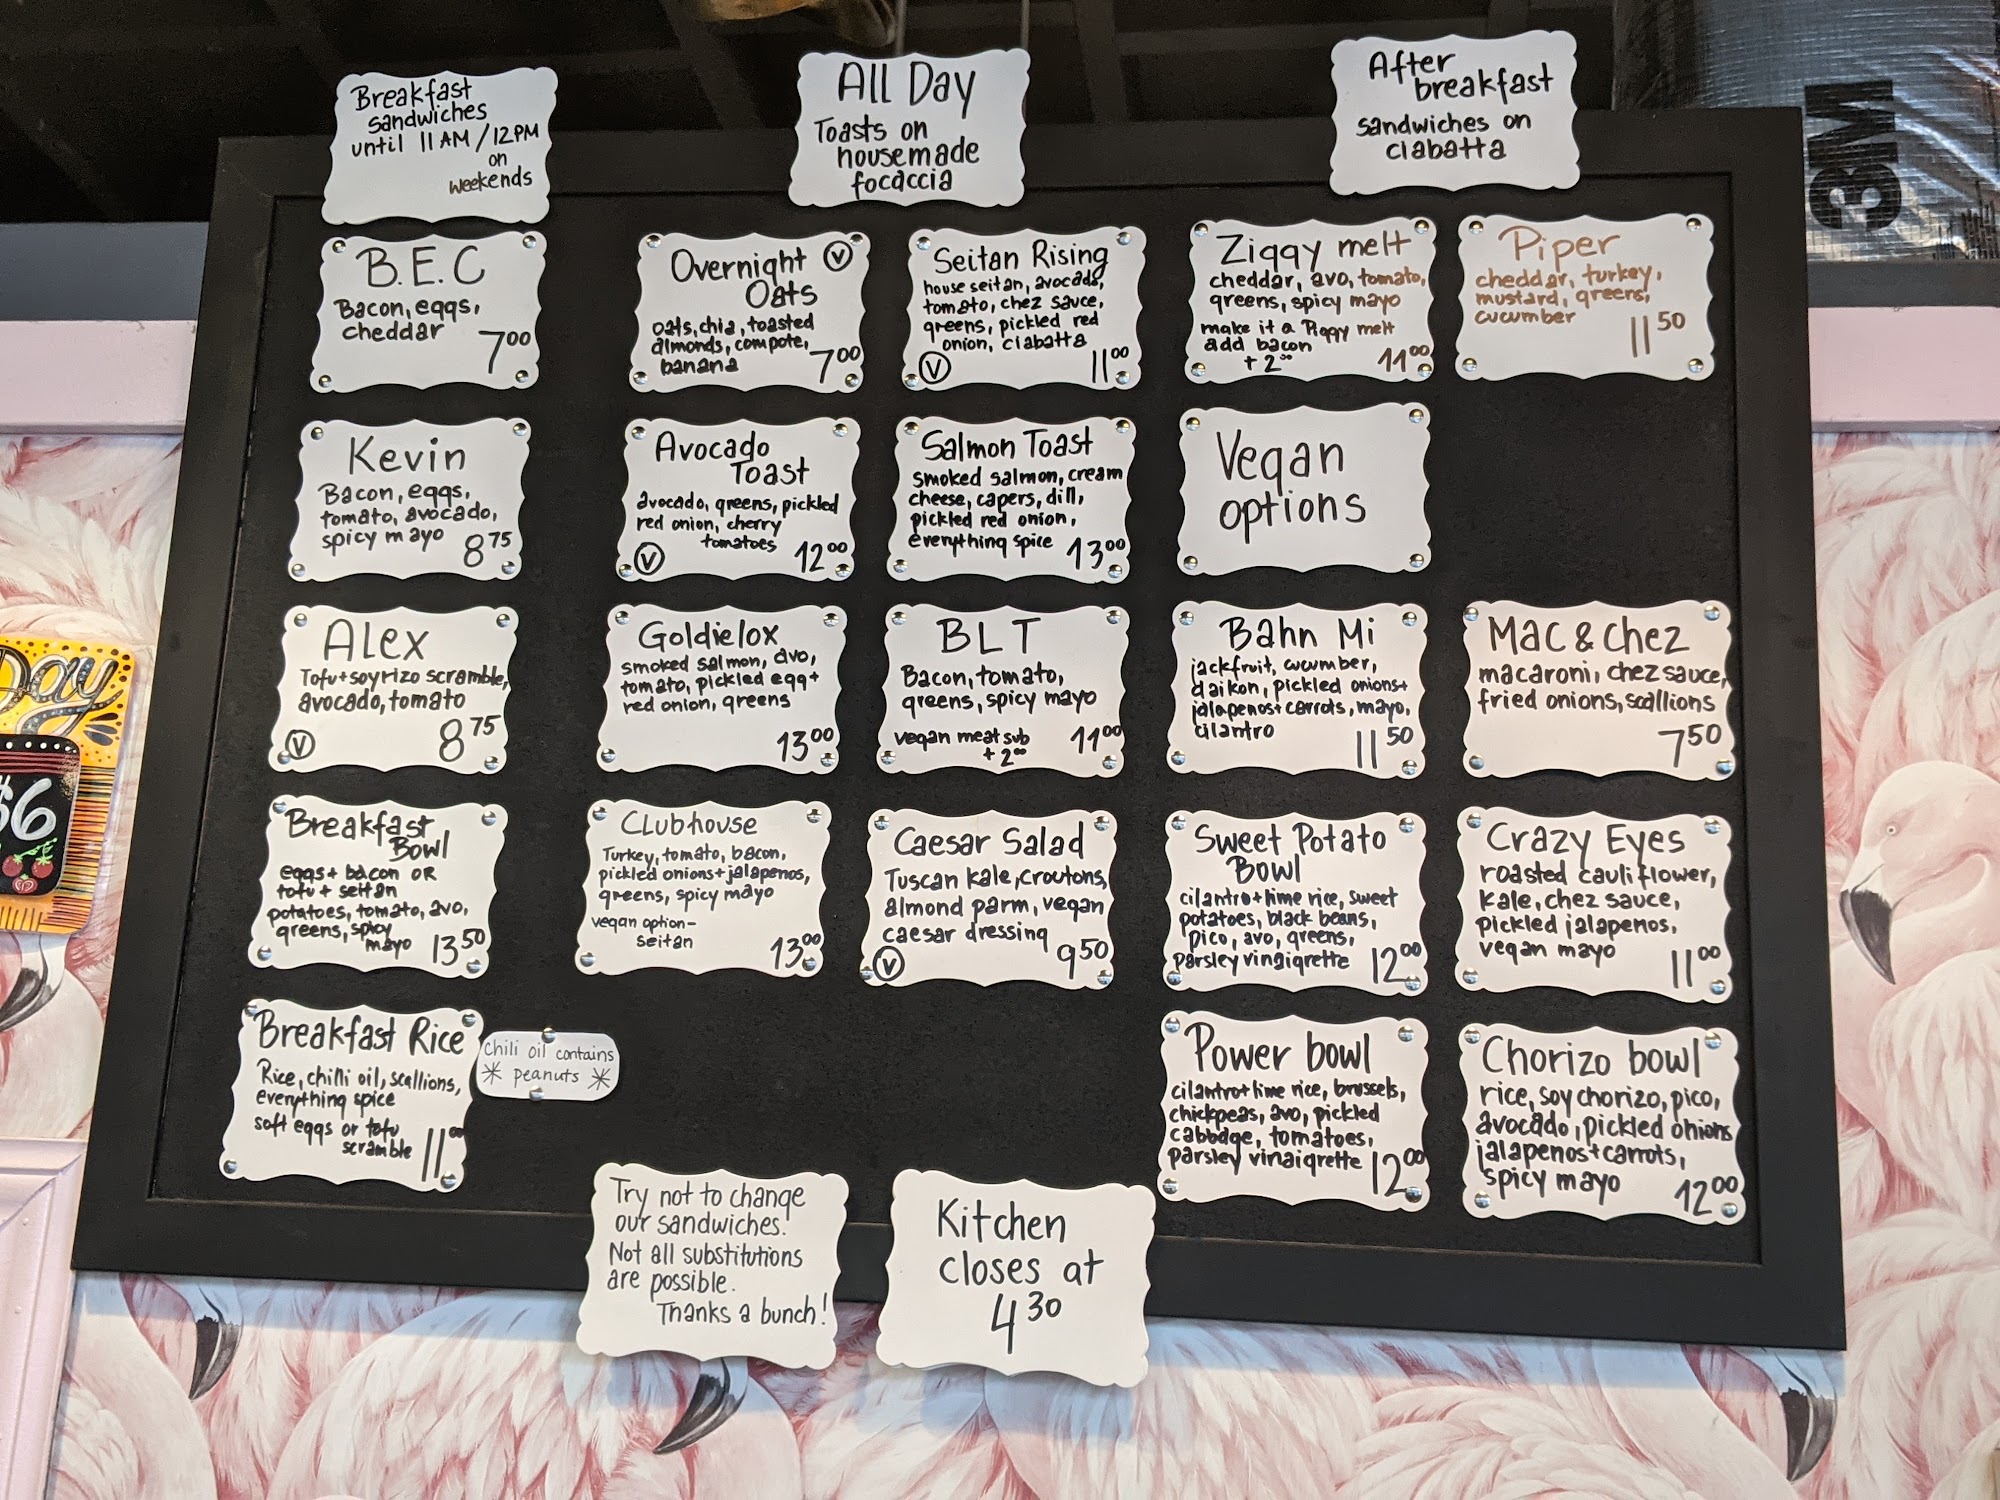 Breakfast
sandwiches
until 11AM/12PM
on
weekends
All Day
Toasts on
housemade
focaccia
After
breakfast
sandwiches on
ciabatta
3M
B.E.C
Bacon, eggs,
cheddar
7.00
Overnight Ⓥ
Oats
oats, chia, toasted
almonds, compote,
banana
7.00
Seitan Rising
house seitan, avocado,
tomato, chez sauce,
greens, pickled red
onion, ciabatta
Ⓥ 11.00
Ziggy melt
cheddar, avo, tomato,
greens, spicy mayo
make it a Piggy melt
add bacon
+2.00 11.00
Piper
cheddar, turkey,
mustard, greens,
cucumber
11.50
Kevin
Bacon, eggs,
tomato, avocado,
spicy mayo 8.75
Avocado
Toast
avocado, greens, pickled
red onion, cherry
tomatoes
Ⓥ 12.00
Salmon Toast
smoked salmon, cream
cheese, capers, dill,
pickled red onion,
everything spice 13.00
Vegan
options
Alex
Tofu+soyrizo scramble,
avocado, tomato
Ⓥ 8.75
Goldielox
smoked salmon, avo,
tomato, pickled egg+
red onion, greens
13.00
BLT
Bacon, tomato,
greens, spicy mayo
vegan meat sub
+2.00 11.00
Bahn Mi
jackfruit, cucumber,
daikon, pickled onions+
jalapenos+carrots, mayo,
cilantro
11.50
Mac & Chez
macaroni, chez sauce,
fried onions, scallions
7.50
Breakfast
Bowl
eggs+bacon OR
tofu+seitan
potatoes, tomato, avo,
greens, spicy
mayo 13.50
Clubhouse
Turkey, tomato, bacon,
pickled onions+jalapenos,
greens, spicy mayo
vegan option-
seitan
13.00
Caesar Salad
Tuscan kale, croutons,
almond parm, vegan
caesar dressing
Ⓥ 9.50
Sweet Potato
Bowl
cilantro+lime rice, sweet
potatoes, black beans,
pico, avo, greens,
parsley vinaigrette 12.00
Crazy Eyes
roasted cauliflower,
kale, chez sauce,
pickled jalapenos,
vegan mayo
11.00
Breakfast Rice
Rice, chilli oil, scallions,
everything spice
soft eggs or tofu
scramble 11.00
chili oil contains
* peanuts *
Power bowl
cilantro+lime rice, brussels,
chickpeas, avo, pickled
cabbage, tomatoes,
parsley vinaigrette 12.00
Chorizo bowl
rice, soy chorizo, pico,
avocado, pickled onions
jalapenos+carrots,
spicy mayo 12.00
Try not to change
our sandwiches!
Not all substitutions
are possible.
Thanks a bunch!
Kitchen
closes at
4.30
Day
$6